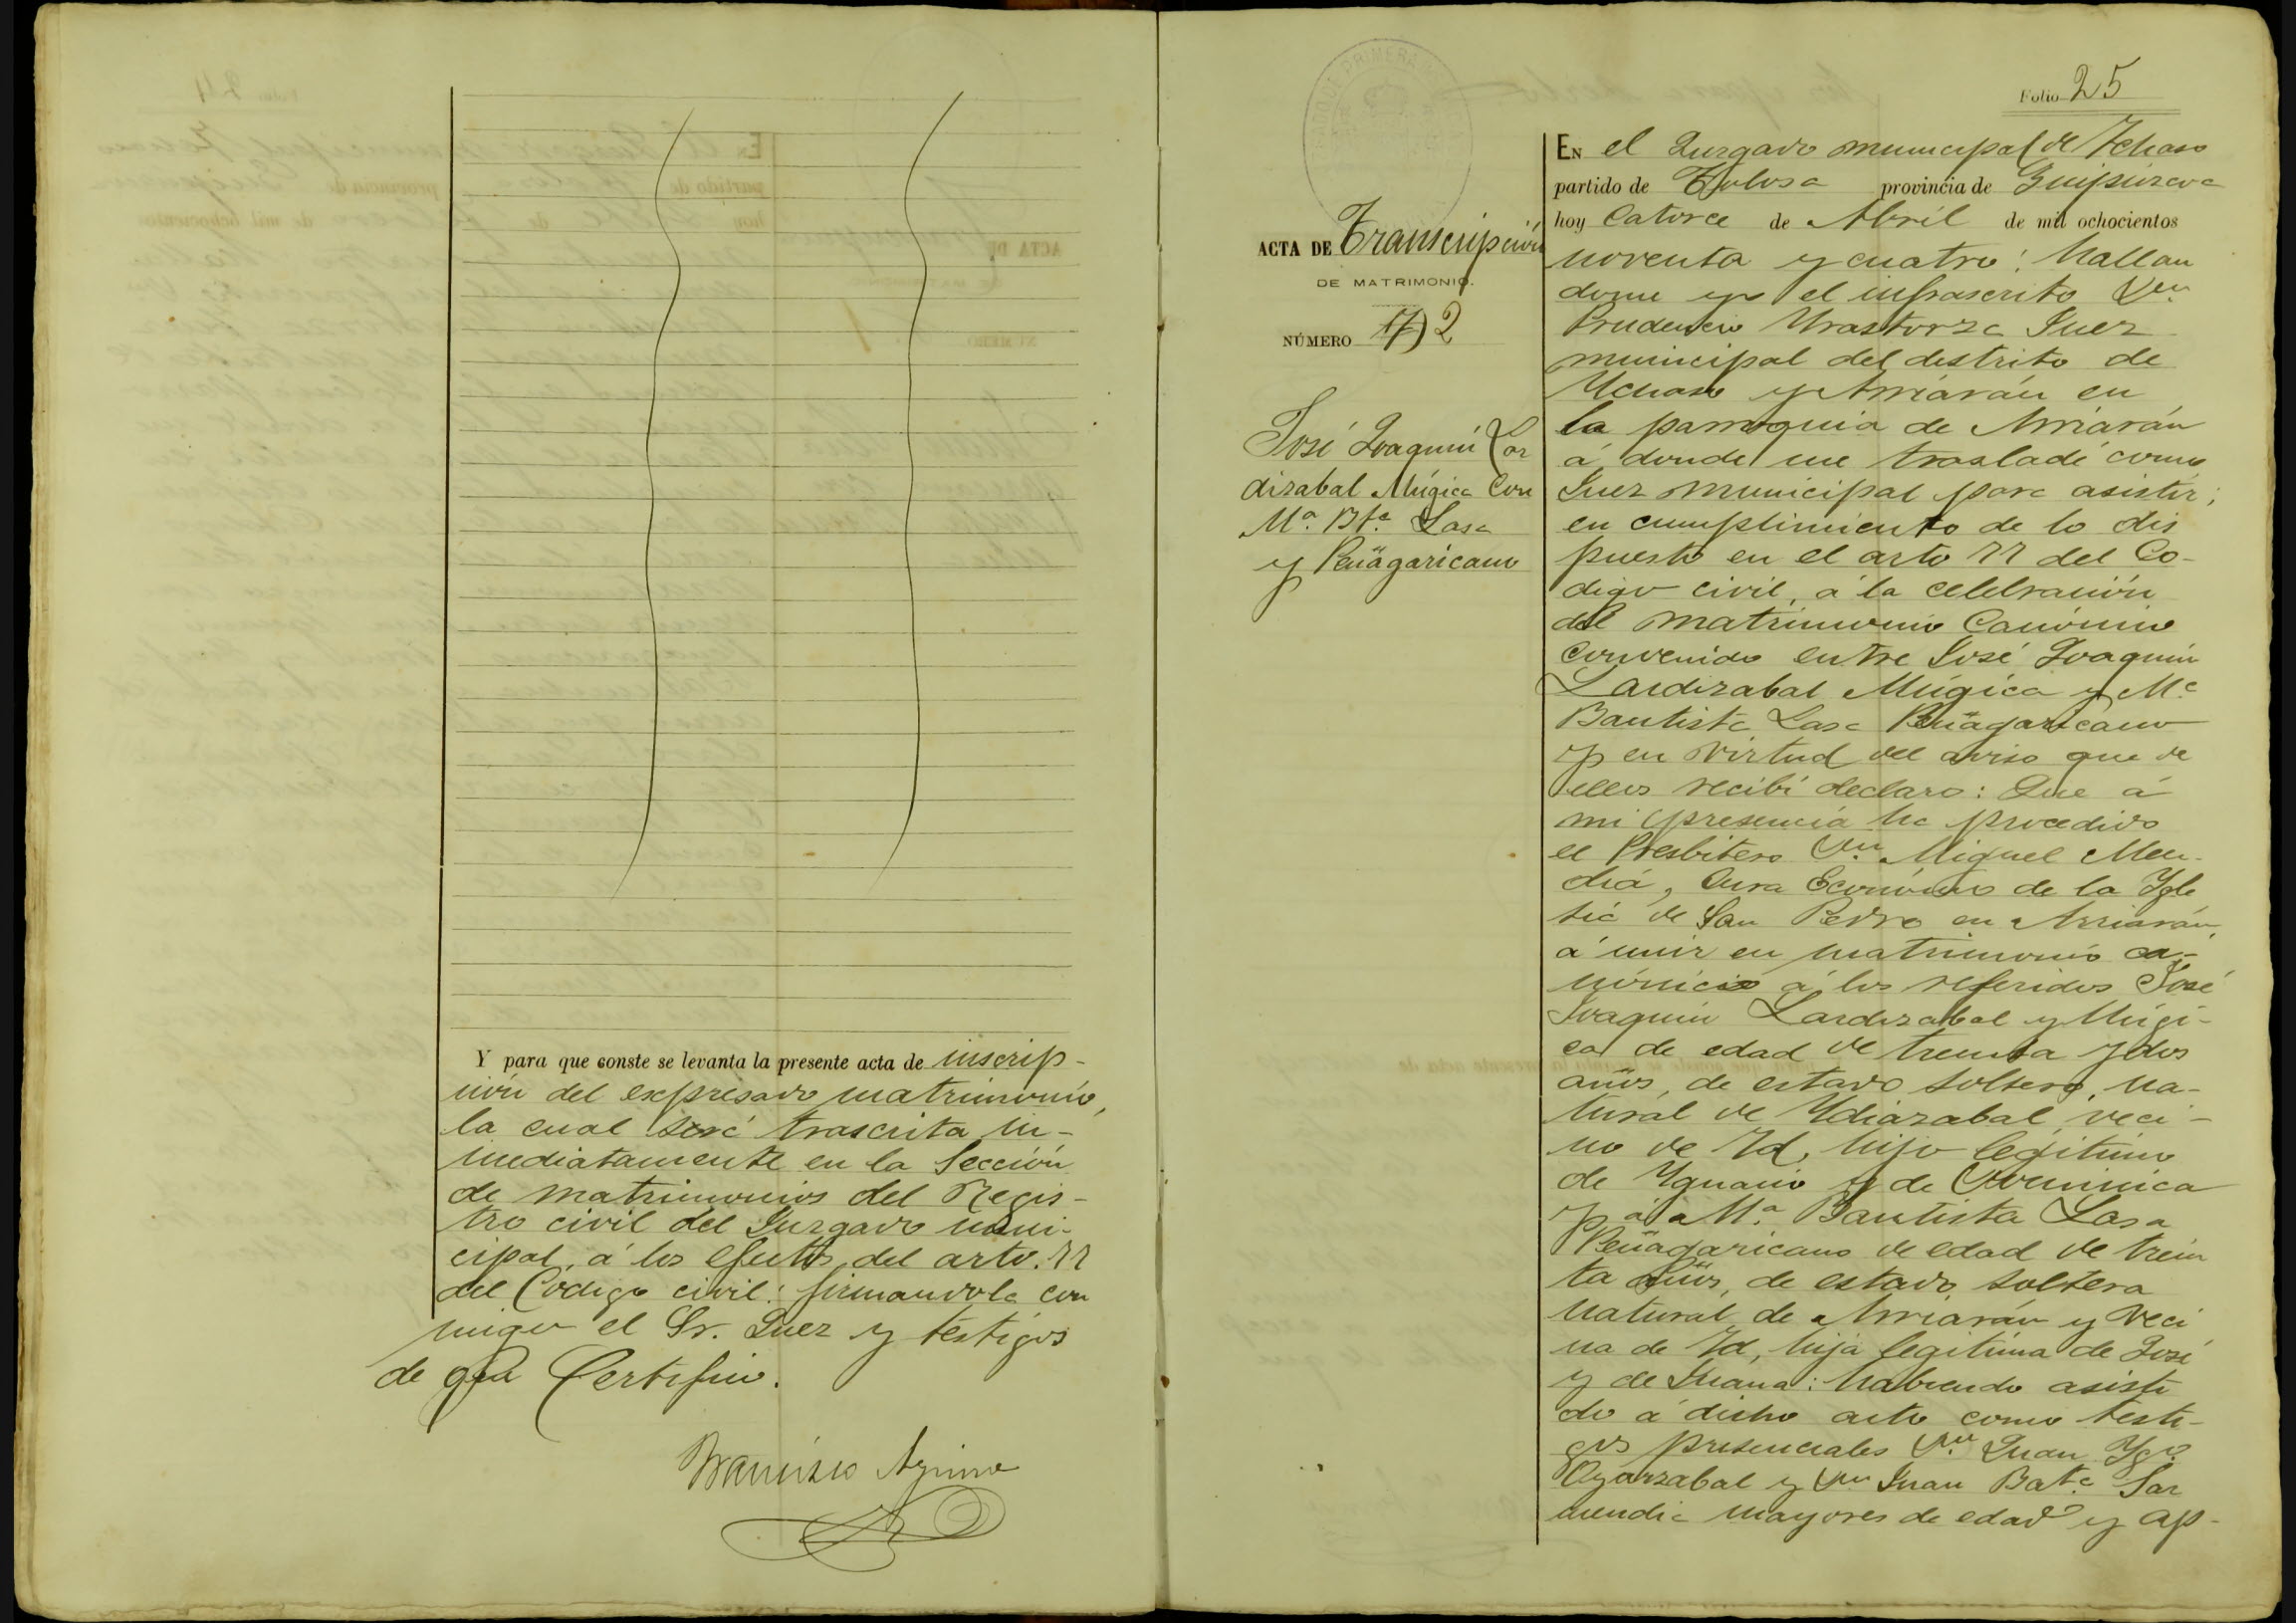 Y para que conste se levanta la presente acta de inscrip-
ción del expresado matrimonio,
la cual será trascrita in-
mediatamente en la Sección
de matrimonios del Regis-
tro civil del Juzgado muni-
cipal, á los efectos del arto. 77
del Codigo civil: firmandola con
migo el Sr. Juez y testigos
de que Certifico.
Francisco
Folio 25
ACTA DE Transcripción
DE MATRIMONIO.
NÚMERO 2
José Joaquin Lar
dizabal Múgica Con
Mª. Btª Lasa
y Peñagaricano
EN el Juzgado municipal de Ichaso
partido de Tolosa provincia de Guipúzcoa
hoy Catorce de Abril de mil ochocientos
noventa y cuatro: hallan
dome yo el infrascrito Dn.
Prudencio Urastorza Juez
municipal del distrito de
Ychaso y Arriarán en
la parroquia de Arriarán
á donde me trasladé como
Juez municipal para asistir,
en cumplimiento de lo dis
puesto en el arto 77 del Co-
digo civil, á la celebración
del matrimonio Canónico
Convenido entre José Joaquin
Lardizabal Múgica y Mª
Bautista Lasa Peñagaricano
y en virtud del aviso que de
ellos recibí declaro: Que á
mi presencia ha procedido
el Presbitero Dn. Miguel Men-
dia, Cura Ecónomo de la Ygle
sia de San Pedro en Arriarán,
á unir en matrimonio ca-
nónico á los referidos José
Joaquin Lardizabal y Múgi-
ca de edad de treinta y dos
años, de estado soltero, na-
tural de Ydiazabal, veci-
no de Id, hijo legitimo
de Ygnacio y de Dominica
y á Mª Bautista Lasa
Peñagaricano de edad de trein
ta años, de estado soltera
natural de Arriarán y veci
na de Id, hija legitima de José
y de Juana: habiendo asisti
do á dicho acto como testi-
gos presenciales Dn. Juan Ygº
Oyarzabal y Dn Juan Batª Sar
mendia mayores de edad y ap-